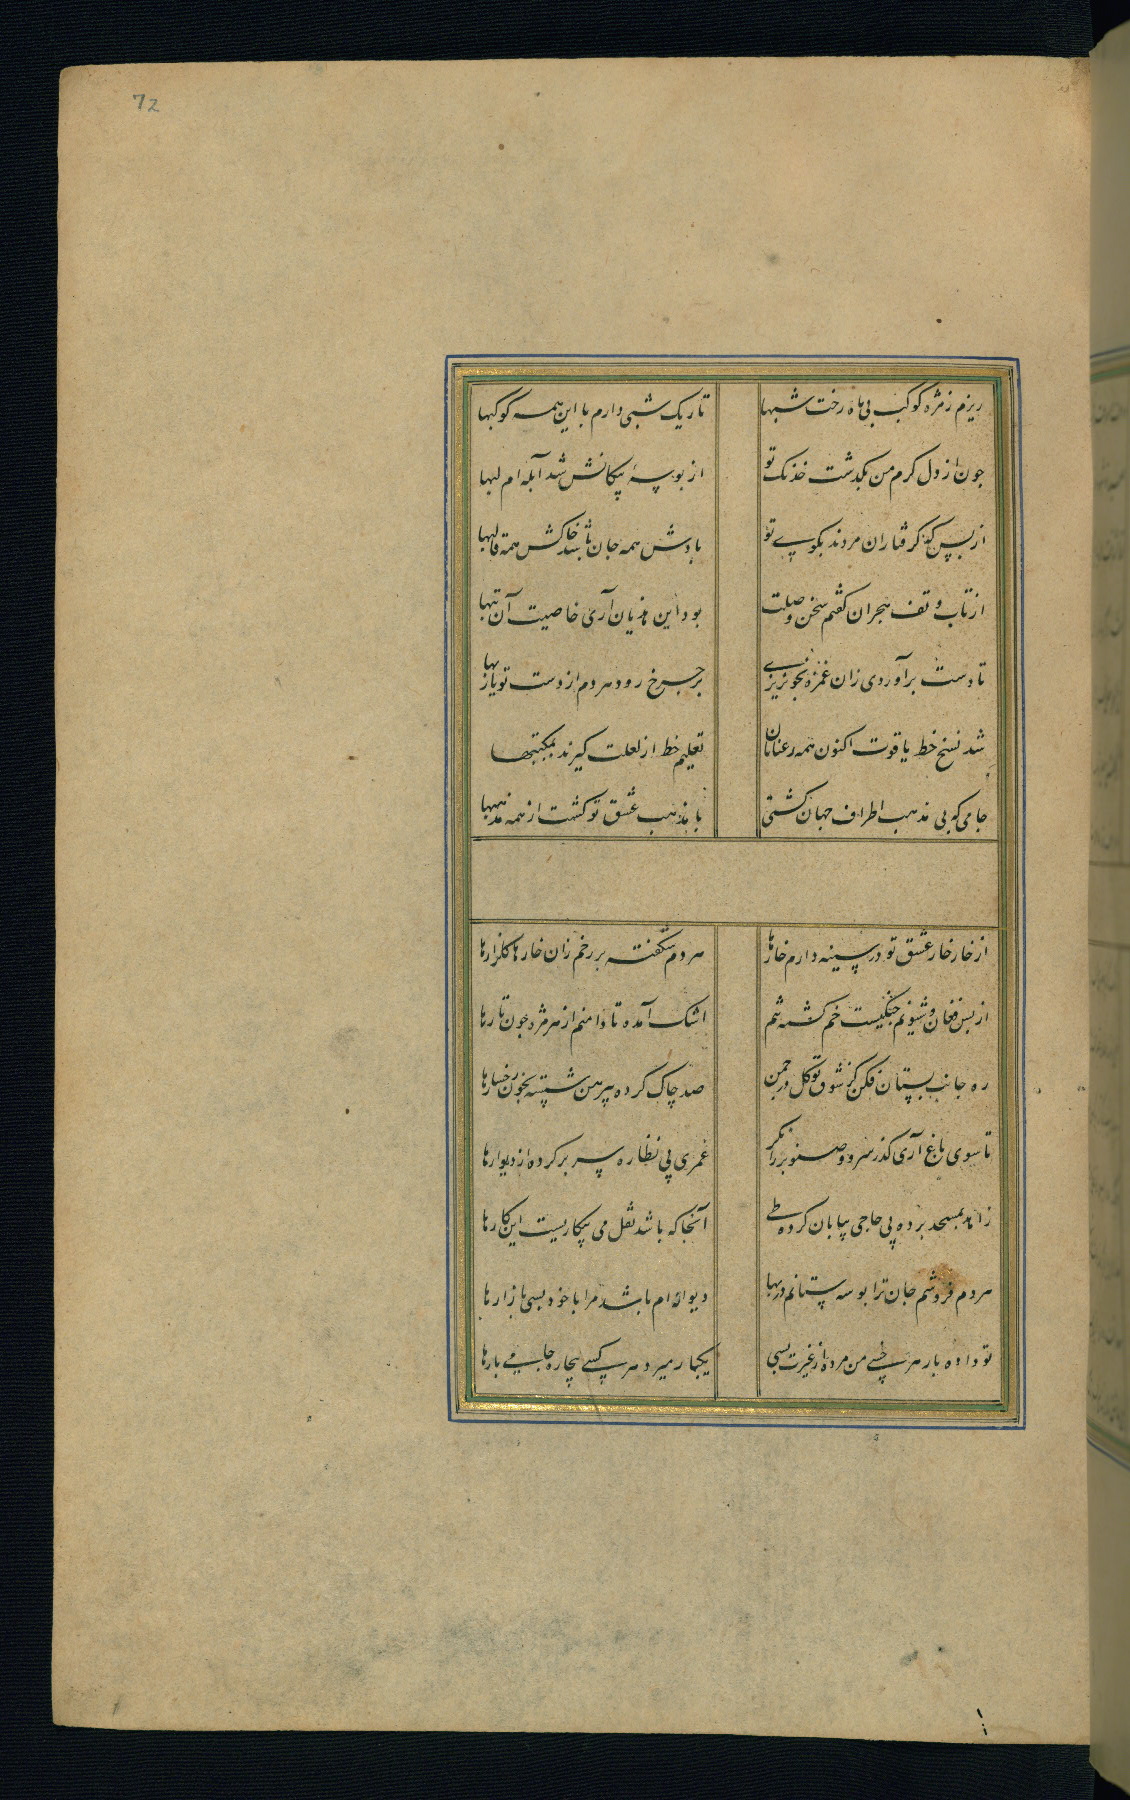 72
ریزم ز مژه کوکب بی ماه رخت شبها تاریک شبی دارم با این همه کوکبها
جون از دل کرم من بکدشت خدنک تو از بوسۀ پیکانش شد آبله ام لبها
از بس که کرفتاران مردند بکوی تو بادش همه جان باشد خاکش همه قالبها
از تاب و تف هجران کفتم سخن وصلت بود این هذیان آری خاصیت آن تبها
تا دست برآوردی زان غمزه بخونریزی بر جرخ رود هر دم از دست تو یاربها
شد نسخ خط یاقوت اکنون همه رعنایان تعلیم خط از لعلت کیرند بمکتبها
جامی که پی مذهب اطراف جهان کشتی با مذهب عشق تو کشت از همه مذهبها
از خار خار عشق تو در سینه دارم خارها هر دم شکفته بر رخم زان خارها کلزارها
از بس فغان و شیونم جنکیست خم کشته تنم اشک آمده تا دامنم از هر مژه جون تارها
ره جانب بستان فکن کز شوق تو کل در جمن صد چاک کرده پیرهن شسته بخون رخسارها
تا سوی باغ آری کذر سرو و صنوبر را نکر عمری پی نظاره سر بر کرده از دیوارها
زاهد بمسجد برده پی حاجی بیابان کرده طی آنجا که باشد نقل می بیکاریست این کارها
هر دم فروشم جان ترا بوسه ستانم در بها دیوانه ام باشد مرا با خود بسی بازارها
تو داده بار هر خسی من مرده از غیرت بسی یکبار میرد هر کسی بیچاره جامی بارها